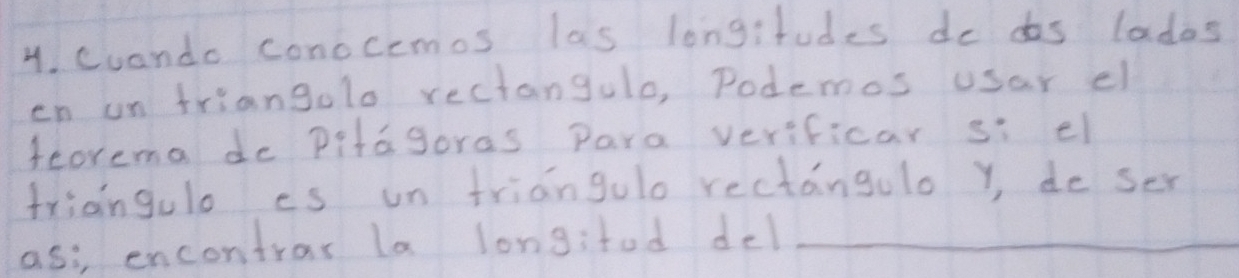 4. Cuando conocemos las longitudes de dos lados
en un triangulo rectangulo, Podemos usar el
teorema de Pitágoras Para verificar si el
triángulo es un triángulo rectángulo Y, de ser
asi, encontrar la longitud del